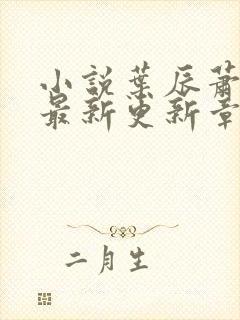 小説葉辰蕭
最新更新章
二月生